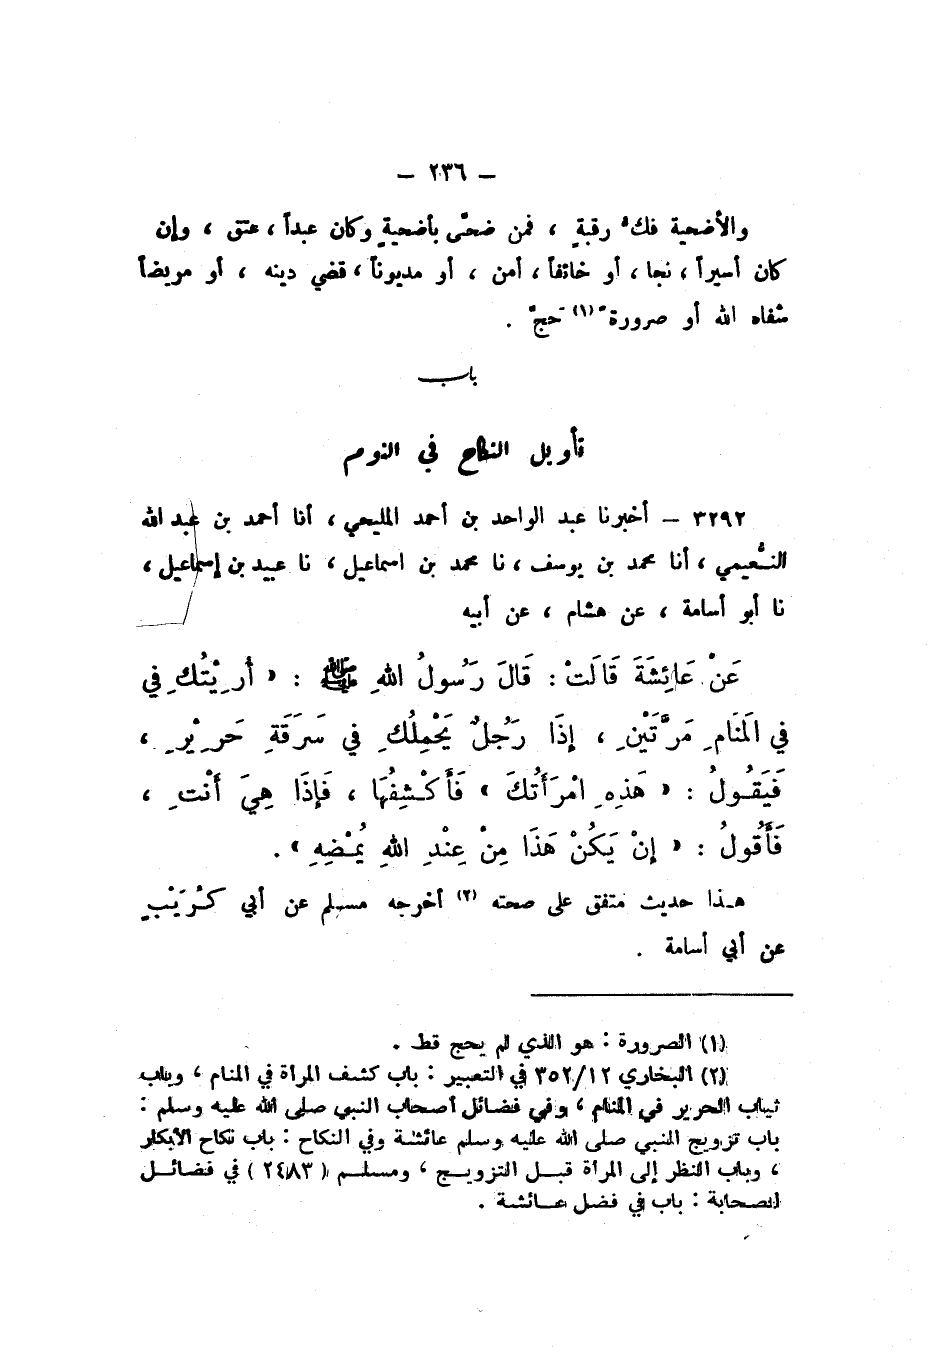 — ٢٣٦ —
والأضحية فكُ رقبةٍ ، فمن ضحّى بأضحيةٍ وكان عبداً ، عتق ، وإن
كان أسيراً ، نجا ، أو خائفاً ، أمن ، أو مديوناً ، قضي دينه ، أو مريضاً
شفاه الله أو صرورةً (١) حَجّ .
باب
تأويل النكاح في النوم
٣٢٩٢ — أخبرنا عبد الواحد بن أحمد المليحي ، أنا أحمد بن عبد الله
النُّعيمي ، أنا محمد بن يوسف ، نا محمد بن اسماعيل ، نا عبيد بن إسماعيل ،
نا أبو أسامة ، عن هشام ، عن أبيه
عَنْ عَائِشَةَ قَالَتْ : قَالَ رَسُولُ اللهِ ﷺ : « أُرِيْتُكِ فِي
فِي المَنَامِ مَرَّتَيْنِ ، إِذَا رَجُلٌ يَحْمِلُكِ فِي سَرَقَةِ حَرِيْرٍ ،
فَيَقُولُ : « هَذِهِ امْرَأَتُكَ » فَأَكْشِفُهَا ، فَإِذَا هِيَ أَنْتِ ،
فَأَقُولُ : « إِنْ يَكُنْ هَذَا مِنْ عِنْدِ اللهِ يُمْضِهِ » .
هذا حديث متفق على صحته (٢) أخرجه مسلم عن أبي كُرَيْبٍ
عن أبي أسامة .
(١) الصرورة : هو الذي لم يحج قط .
(٢) البخاري ٣٥٢/١٢ في التعبير : باب كشف المرأة في المنام ، وباب
ثياب الحرير في المنام ، وفي فضائل أصحاب النبي صلى الله عليه وسلم :
باب تزويج النبي صلى الله عليه وسلم عائشة وفي النكاح : باب نكاح الأبكار
، وباب النظر إلى المرأة قبل التزويج ، ومسلم ( ٢٤٨٣ ) في فضائل
الصحابة : باب في فضل عائشة .